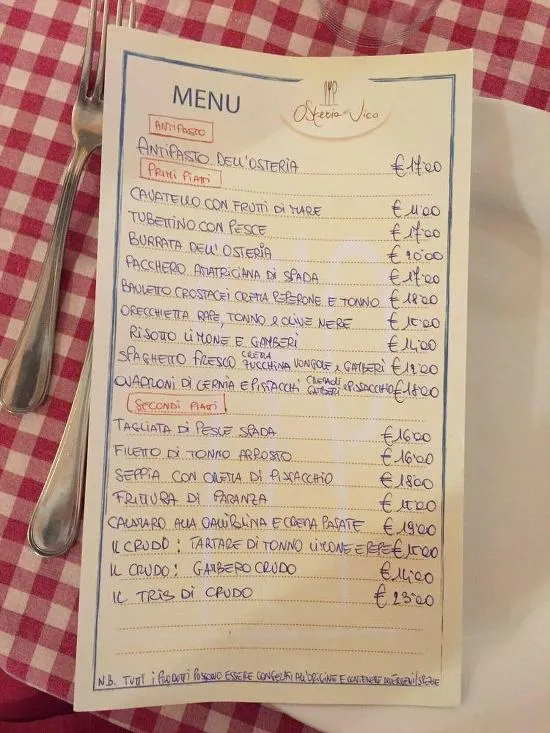 MENU
Osteria Vico
ANTIPASTO
ANTIPASTO DELL'OSTERIA €17,00
PRIMI PIATTI
CAVATELLO CON FRUTTI DI MARE €
TUBETTINO CON PESCE €17,00
BURRATA DELL'OSTERIA €
PACCHERO AMATRICIANA DI SPADA €17,00
BAULETTO CROSTACEI CREMA PEPERONE E TONNO €18,00
ORECCHIETTA RAPE, TONNO E OLIVE NERE €
RISOTTO LIMONE E GAMBERI €14,00
SPAGHETTO FRESCO CREMA ZUCCHINA VONGOLE E GAMBERI €
QUADRONI DI CERNIA E PISTACCHI GAMBERI E PISTACCHIO €18,00
SECONDI PIATTI
TAGLIATA DI PESCE SPADA €16,00
FILETTO DI TONNO ARROSTO €16,00
SEPPIA CON CREMA DI PISTACCHIO €18,00
FRITTURA DI PARANZA €
CALAMARO ALLA E CREMA PATATE €19,00
IL CRUDO: TARTARE DI TONNO LIMONE E PEPE €
IL CRUDO: GAMBERO CRUDO €14,00
IL TRIS DI CRUDO €23,00
N.B. TUTTI I PRODOTTI POSSONO ESSERE CONGELATI ALL'ORIGINE E CONTENERE ALLERGENI